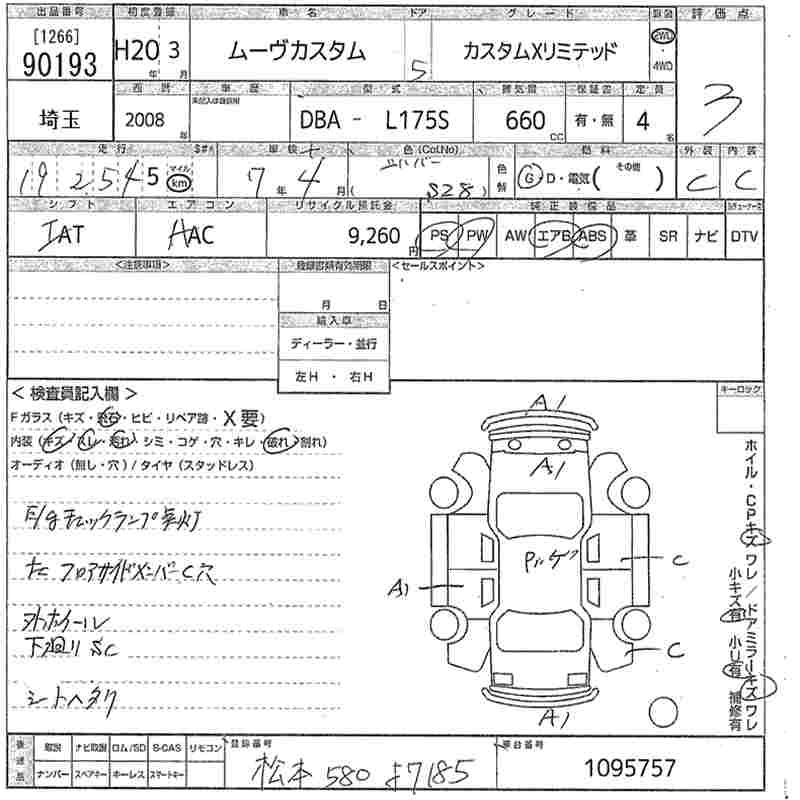 出品番号 初度登録 車名 ドア グレード 駆動 評価点
[1266]
90193 H20 3 ムーヴカスタム 5 カスタムXリミテッド 2WD・4WD 3
年 月
西暦 車歴 型式 排気量 保証書 定員
埼玉 2008年 未記入は自家用 DBA - L175S 660cc 有・無 4名
走行 S#A 車検 色(Col.No) 燃料 外装 内装
192545 マイル km 7年4月 シルバー (S28) 色替 G・D・電気( その他 ) C C
シフト エアコン リサイクル預託金 純正装備品
IAT AAC 9,260円 PS PW AW エアB ABS 革 SR ナビ DTV
<注意事項> 登録書類有効期限 <セールスポイント>
月 日
輸入車
ディーラー・並行
左H・右H
<検査員記入欄> キーロック
Fガラス(キズ・飛石・ヒビ・リペア跡・X要)
内装(キズ・スレ・汚れ・シミ・コゲ・穴・キレ・破れ・割れ)
オーディオ(無し・穴)/タイヤ(スタッドレス)
E/gチェックランプ点灯
左フロアサイドメンバーC穴
社外ホイール
下廻りSC
シートヘタク
A1
A1
Pルーフ
C
A1
C
A1
ホイル・CPキズ ワレ/ドアミラーキズ ワレ
小キズ有 小U有 補修有
後送品 取説 ナビ取説 ロム/SD B-CAS リモコン 登録番号 車台番号
ナンバー スペアキー キーレス スマートキー 松本 580 よ7185 1095757